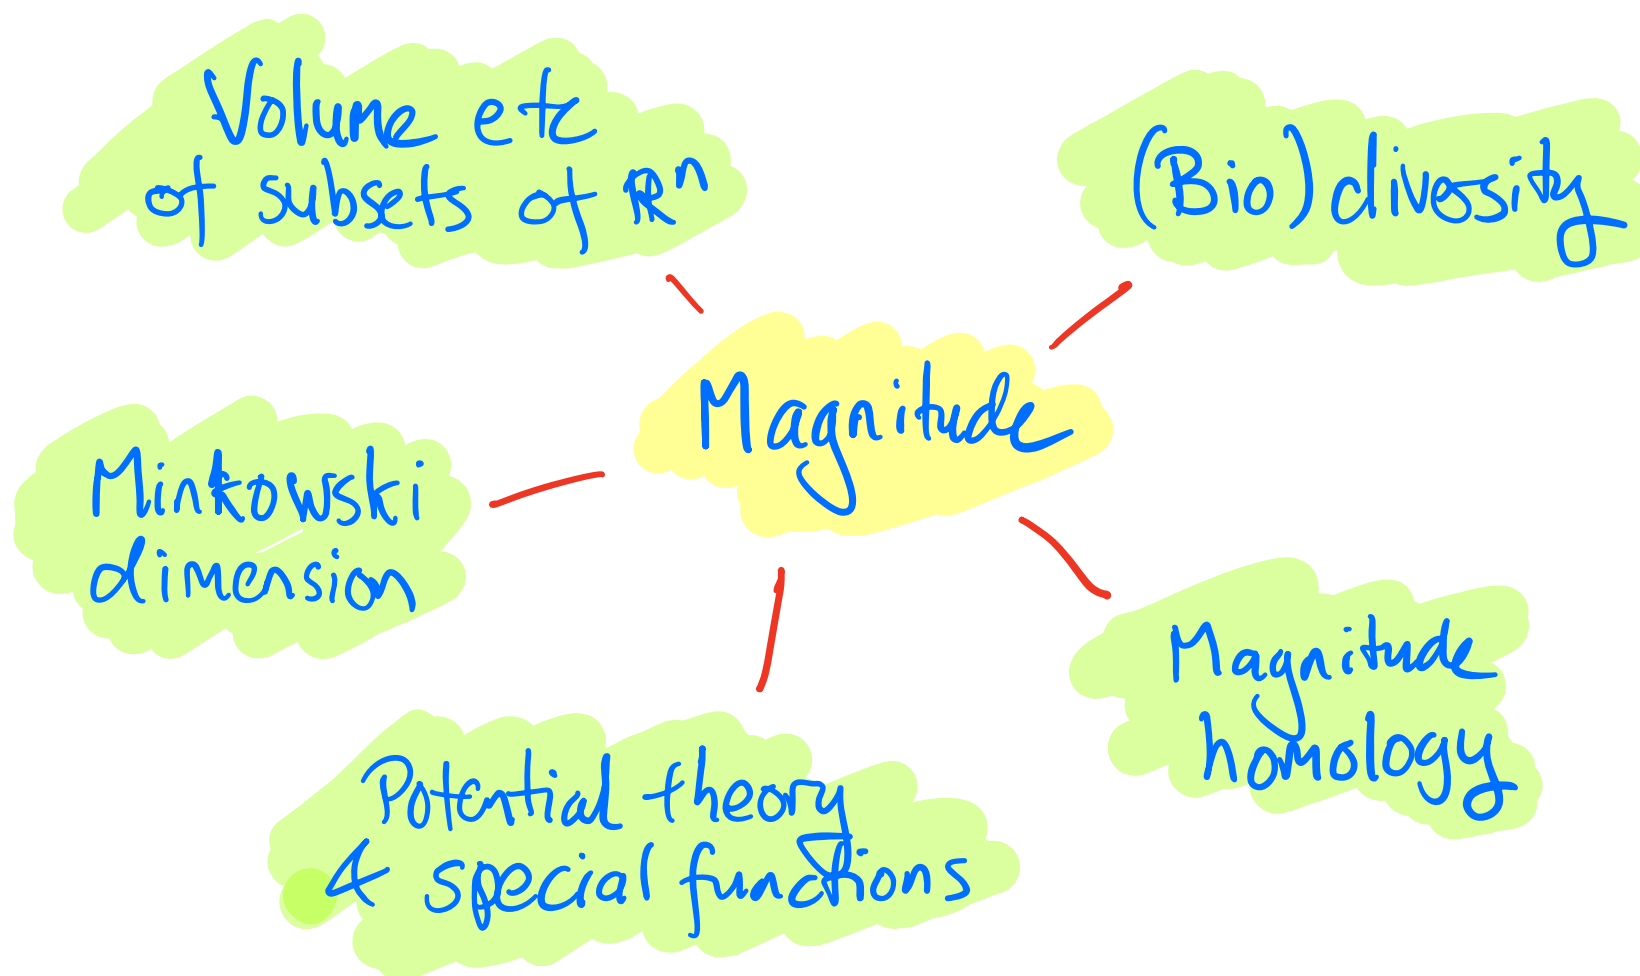 Volume etc
of subsets of ℝⁿ
(Bio)diversity
Magnitude
Minkowski
dimension
Magnitude
homology
Potential theory
& special functions